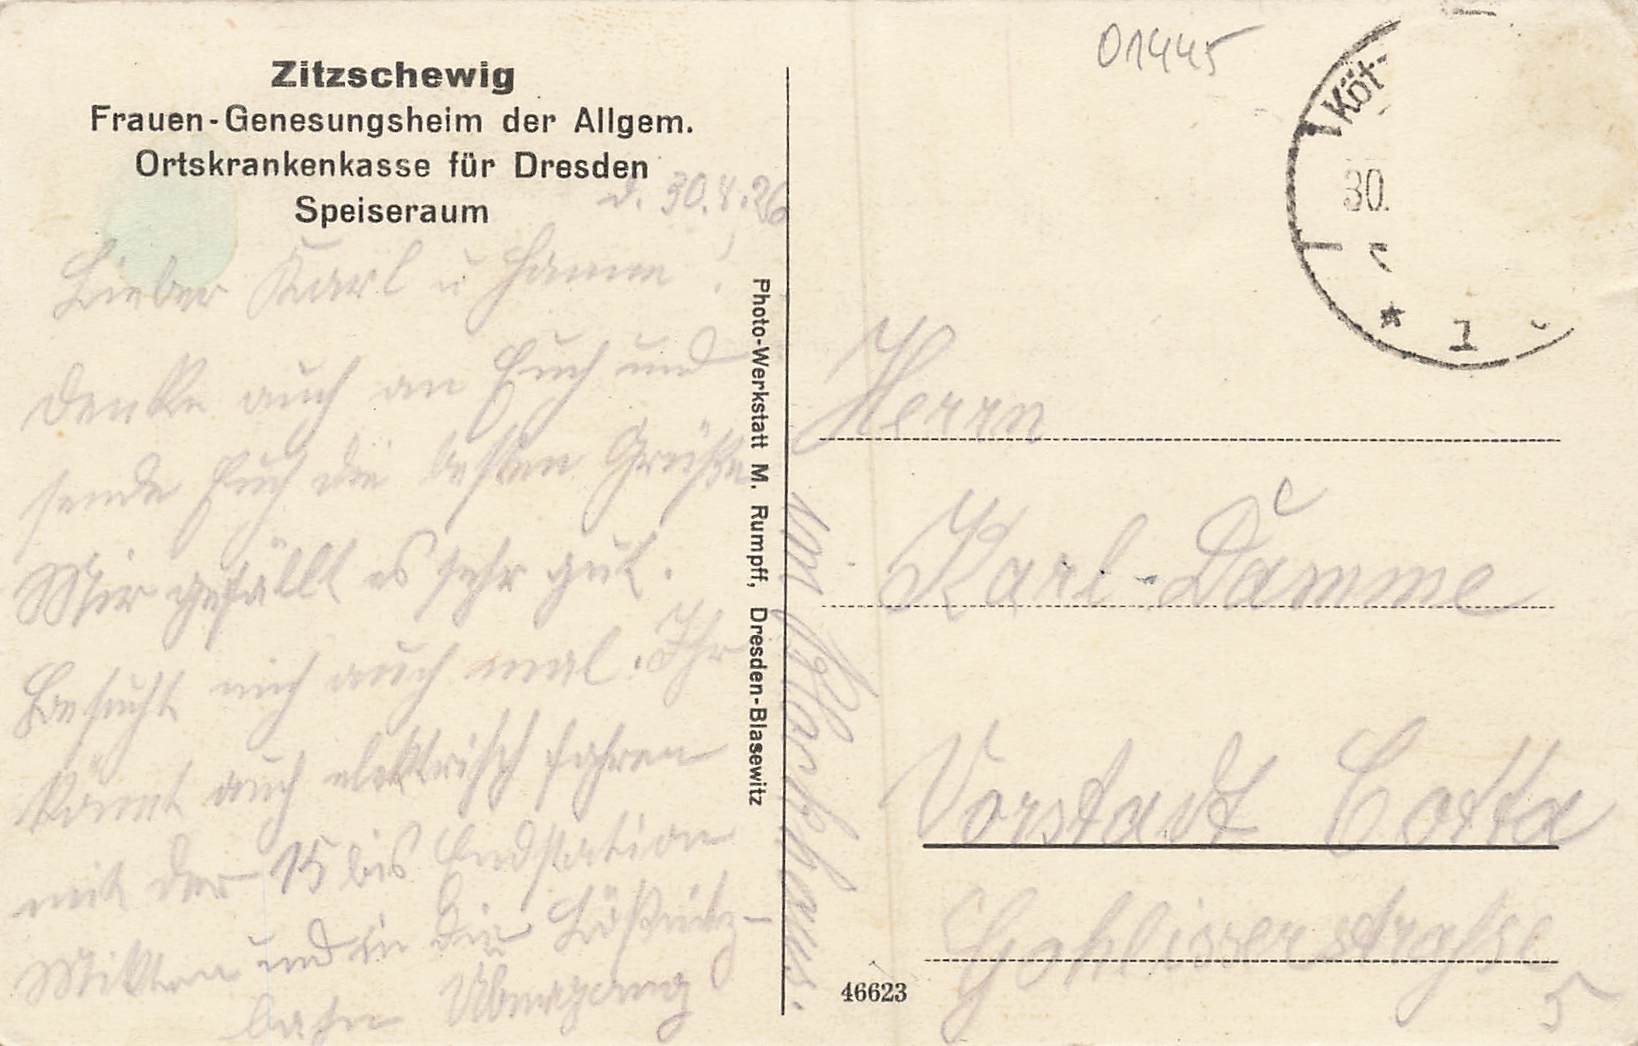 Zitzschewig
Frauen-Genesungsheim der Allgem.
Ortskrankenkasse für Dresden
Speiseraum
d. 30.4.26
Lieber Karl u
Denke auch an Euch und
sende Euch die besten Grüße
Mir gefällt es sehr gut.
Besucht mich auch mal. Ihr
könnt auch elektrisch fahren
mit der 15 bis Endstation
Mikten und in die Lößnitz-
bahn Übergang
Photo-Werkstatt M. Rumpff, Dresden-Blasewitz
01445
Köt
30.
* 1
Herrn
Karl Damme
Vorstadt Cotta
Gohliserstrasse
5
46623